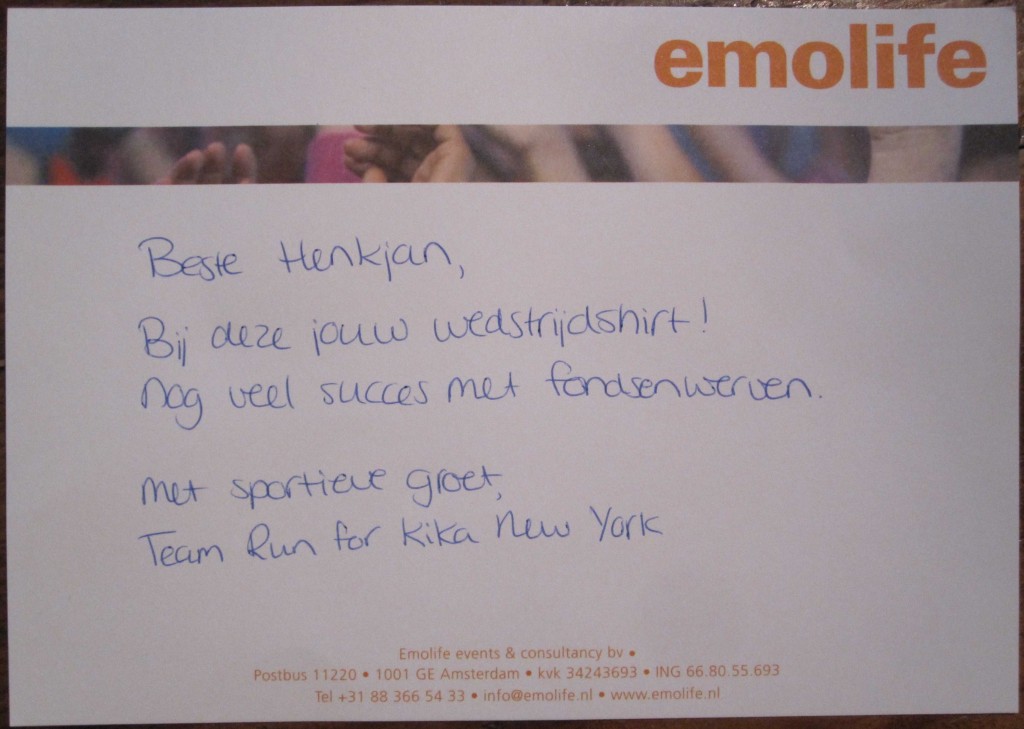 emolife
Beste Henkjan,
Bij deze jouw wedstrijdshirt!
Nog veel succes met fondsenwerven.
Met sportieve groet,
Team Run for Kika New York
Emolife events & consultancy bv •
Postbus 11220 • 1001 GE Amsterdam • kvk 34243693 • ING 66.80.55.693
Tel +31 88 366 54 33 • info@emolife.nl • www.emolife.nl